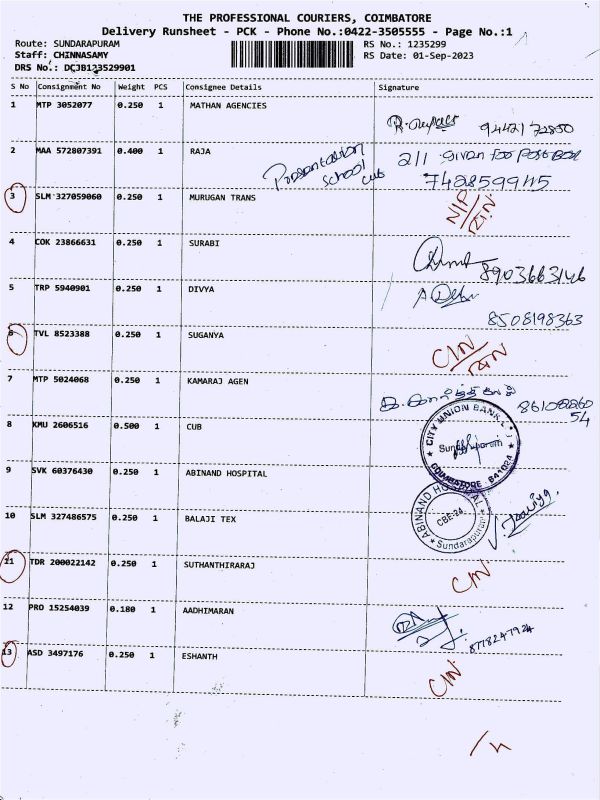 THE PROFESSIONAL COURIERS, COIMBATORE
Delivery Runsheet - PCK - Phone No.:0422-3505555 - Page No.:1
Route: SUNDARAPURAM
Staff: CHINNASAMY
DRS No.: DCJB123529901
RS No.: 1235299
RS Date: 01-Sep-2023
S No Consignment No Weight PCS Consignee Details Signature
1 MTP 3052077 0.250 1 MATHAN AGENCIES
2 MAA 572807391 0.400 1 RAJA
Presentation school cub
2/1 Given for post box
3 SLM 327059060 0.250 1 MURUGAN TRANS
4 COK 23866631 0.250 1 SURABI
8903663146
5 TRP 5940901 0.250 1 DIVYA
8508198363
6 TVL 8523388 0.250 1 SUGANYA
CIN
7 MTP 5024068 0.250 1 KAMARAJ AGEN
8 KMU 2606516 0.500 1 CUB
CITY UNION BANK
Sundarapuram
COIMBATORE - 641024
9 SVK 60376430 0.250 1 ABINAND HOSPITAL
ABINAND HOSPITAL
CBE-24
Sundarapuram
10 SLM 327486575 0.250 1 BALAJI TEX
11 TDR 200022142 0.250 1 SUTHANTHIRARAJ
CIN
12 PRO 15254039 0.180 1 AADHIMARAN
8778247924
13 ASD 3497176 0.250 1 ESHANTH
CIN